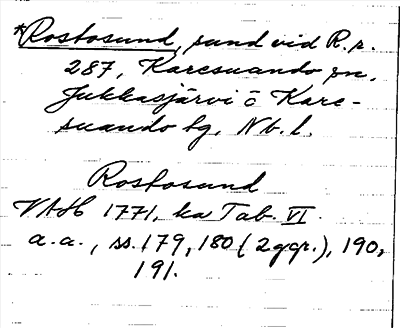 *Rostosund, sund vid R.r.
287, Karesuando sn,
Jukkasjärvi o Kare-
suando tg. Nb. l.
Rostosund
VAH 1771, ka Tab. VI.
a.a., ss. 179, 180 (2 ggr.), 190,
191.